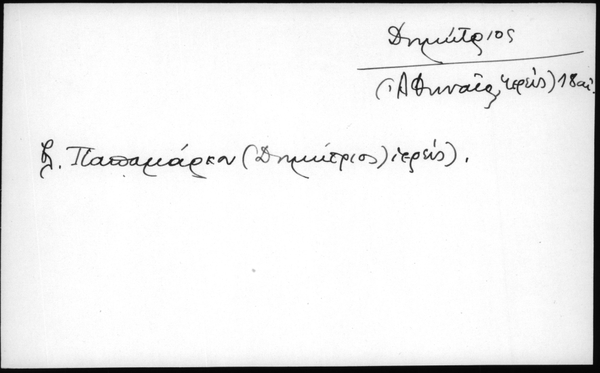 Δημήτριος
(Ἀθηναῖος, ἱερεύς) 18 αἰ.
βλ. Παπαμάρκου (Δημήτριος) ἱερεύς).